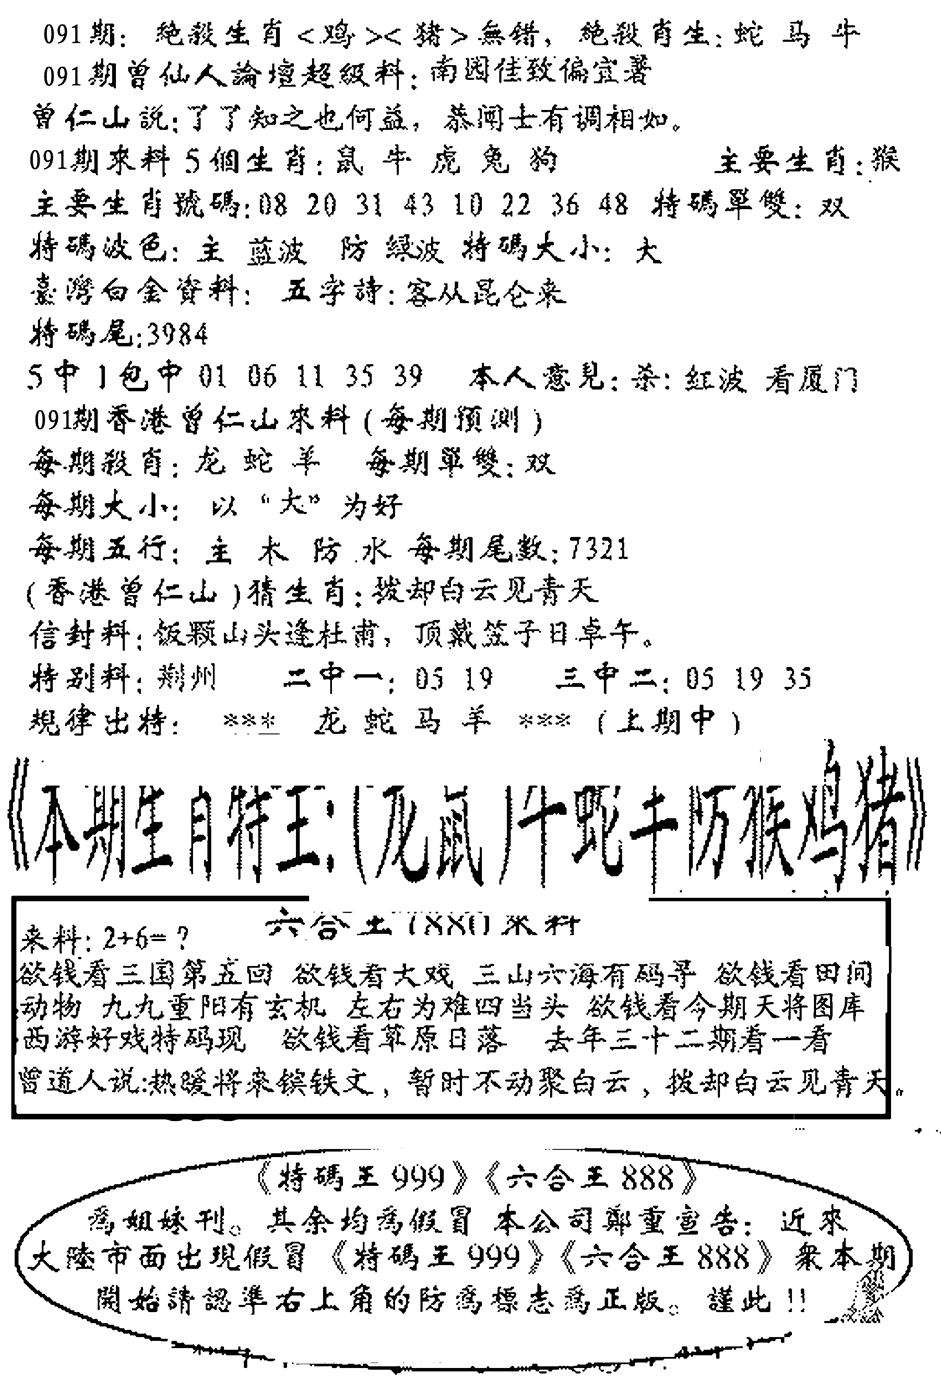 091期: 絶殺生肖<鸡><猪>無錯, 絶殺肖生:蛇 马 牛
091期曾仙人論壇超級料:南园佳致偏宜著
曾仁山説:了了知之也何益, 恭闻士有调相如。
091期來料 5個生肖:鼠 牛 虎 兔 狗 主要生肖:猴
主要生肖號碼:08 20 31 43 10 22 36 48 特碼單雙: 双
特碼波色: 主 蓝波 防 绿波 特碼大小: 大
臺灣白金資料: 五字詩:客从昆仑来
特碼尾:3984
5中1包中 01 06 11 35 39 本人意見: 杀: 红波 看厦门
091期香港曾仁山來料(每期預測)
每期殺肖: 龙 蛇 羊 每期單雙:双
每期大小: 以“大”为好
每期五行: 主 木 防 水 每期尾數:7321
(香港曾仁山)猜生肖:拨却白云见青天
信封料:饭颗山头逢杜甫, 顶戴笠子日卓午。
特别料:荆州 二中一: 05 19 三中二: 05 19 35
規律出特: *** 龙 蛇 马 羊 *** (上期中)
《本期生肖特王:(龙鼠)牛蛇羊防猴鸡猪》
六合王1880来料
来料: 2+6=?
欲钱看三国第五回 欲钱看大戏 三山六海有码寻 欲钱看田间
动物 九九重阳有玄机 左右为难四当头 欲钱看今期天将图库
西游好戏特码现 欲钱看草原日落 去年三十二期看一看
曾道人说:热暖将来镔铁文, 暂时不动聚白云, 拨却白云见青天。
《特碼王999》《六合王888》
爲姐妹刊。其余均爲假冒 本公司鄭重宣告: 近來
大陸市面出現假冒《特碼王999》《六合王888》衆本期
開始請認準右上角的防爲標志爲正版。 謹此!!